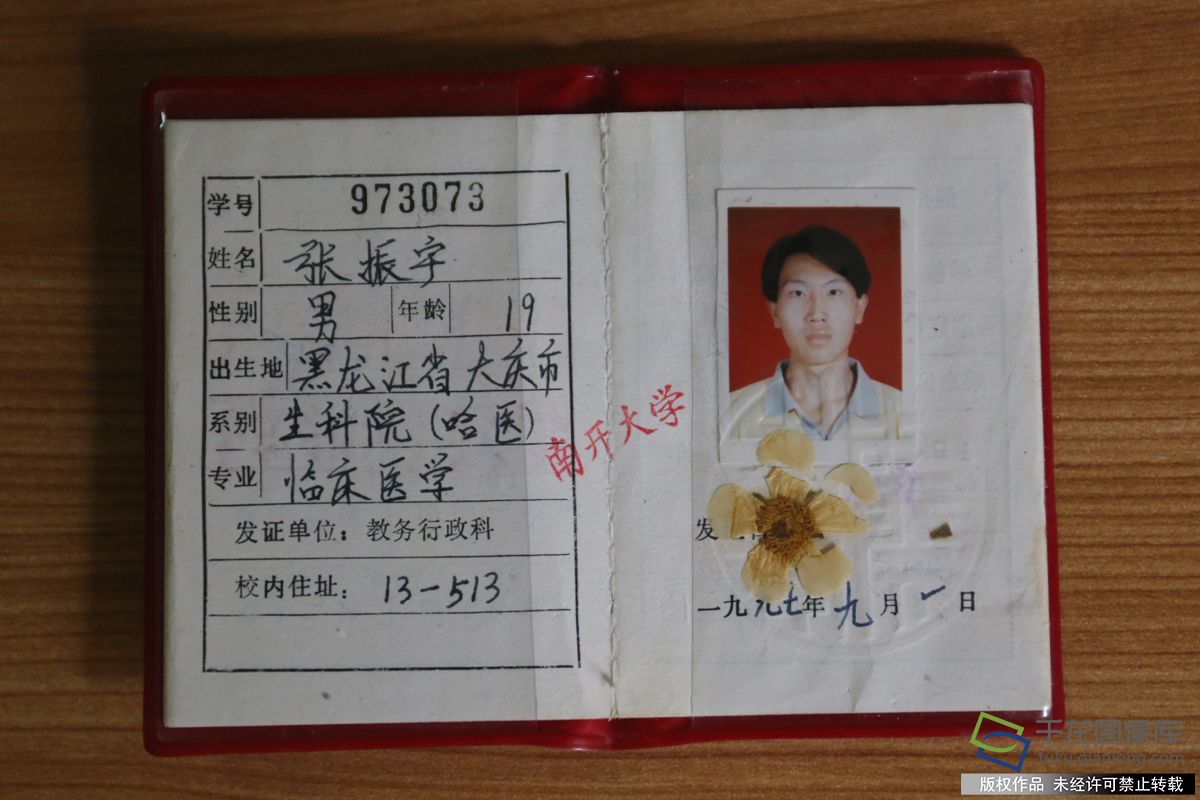 学号 973073
姓名 张振宇
性别 男 年龄 19
出生地 黑龙江省大庆市
系别 生科院(哈医)
专业 临床医学
发证单位：教务行政科
校内住址：13-513
南开大学
发
一九九七年九月一日
千龙图像库
tuku.qianlong.com
版权作品 未经许可禁止转载